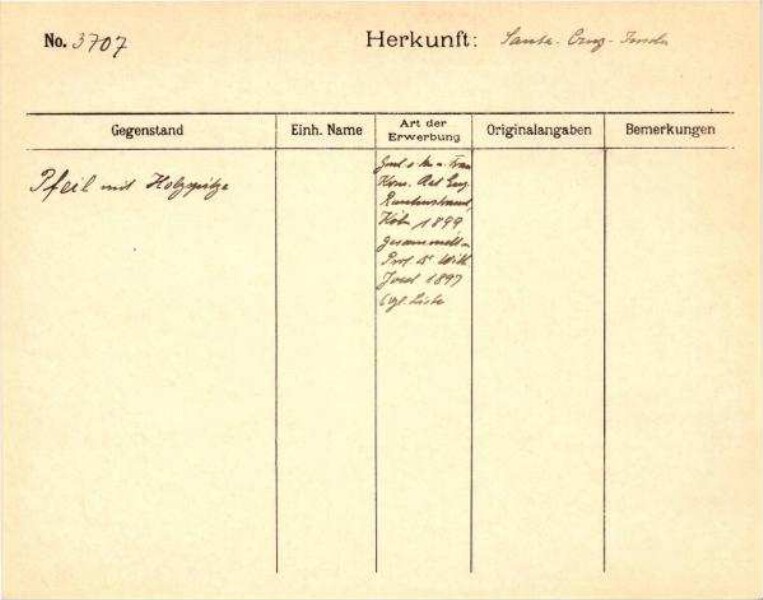 No. 3707
Herkunft: Santa-Cruz-Inseln
Gegenstand
Einh. Name
Art der Erwerbung
Originalangaben
Bemerkungen
Pfeil mit Holzspitze
Gesch. v. H. u. Frau
Kom. Rat Eug.
Rautenstrauch,
Köln 1899
gesammelt v.
Prof. Dr. Wilh.
Joest 1897
(vgl. Liste